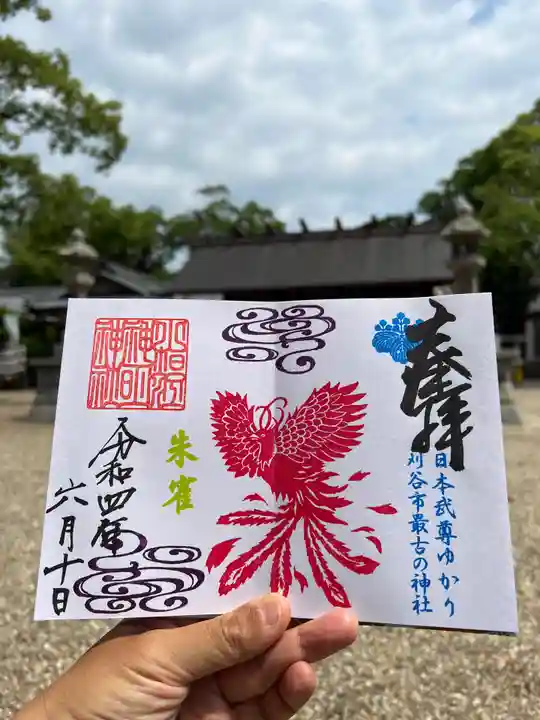 奉拝
日本武尊ゆかり
刈谷市最古の神社
朱雀
令和四年
六月十日